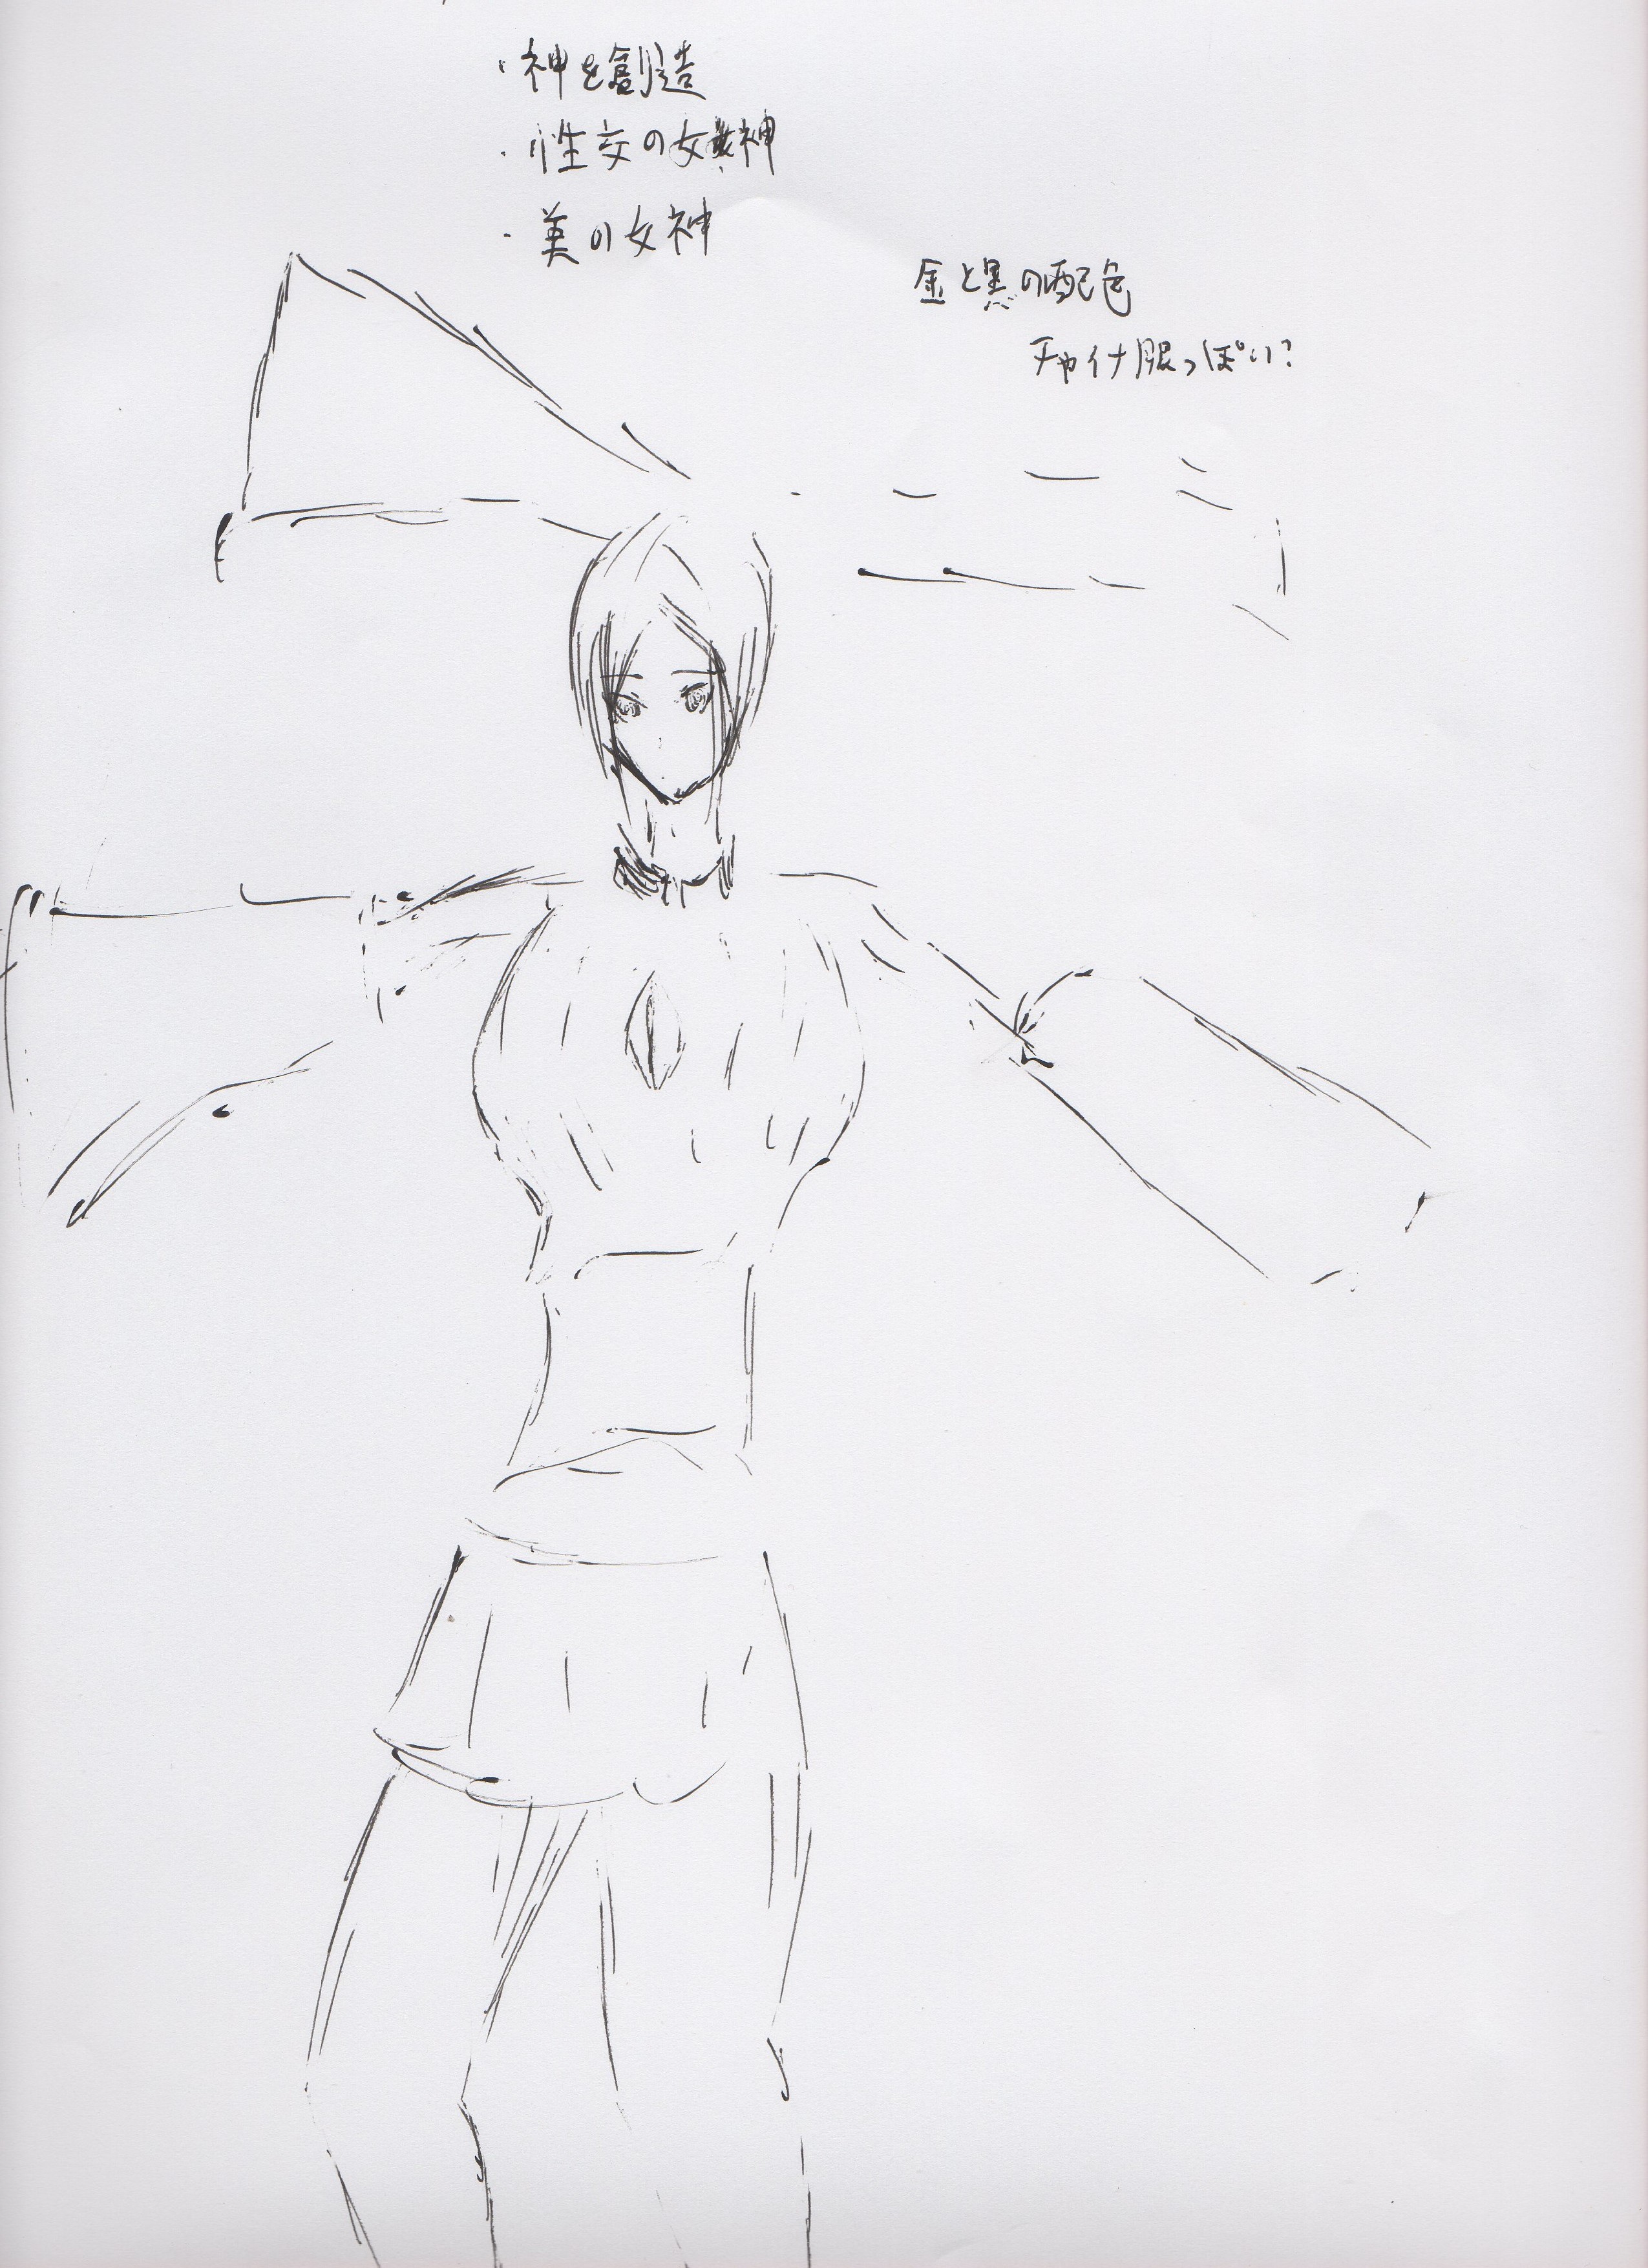 ・神を創造
・性交の女神
・美の女神
金と黒の配色
チャイナ服っぽい?